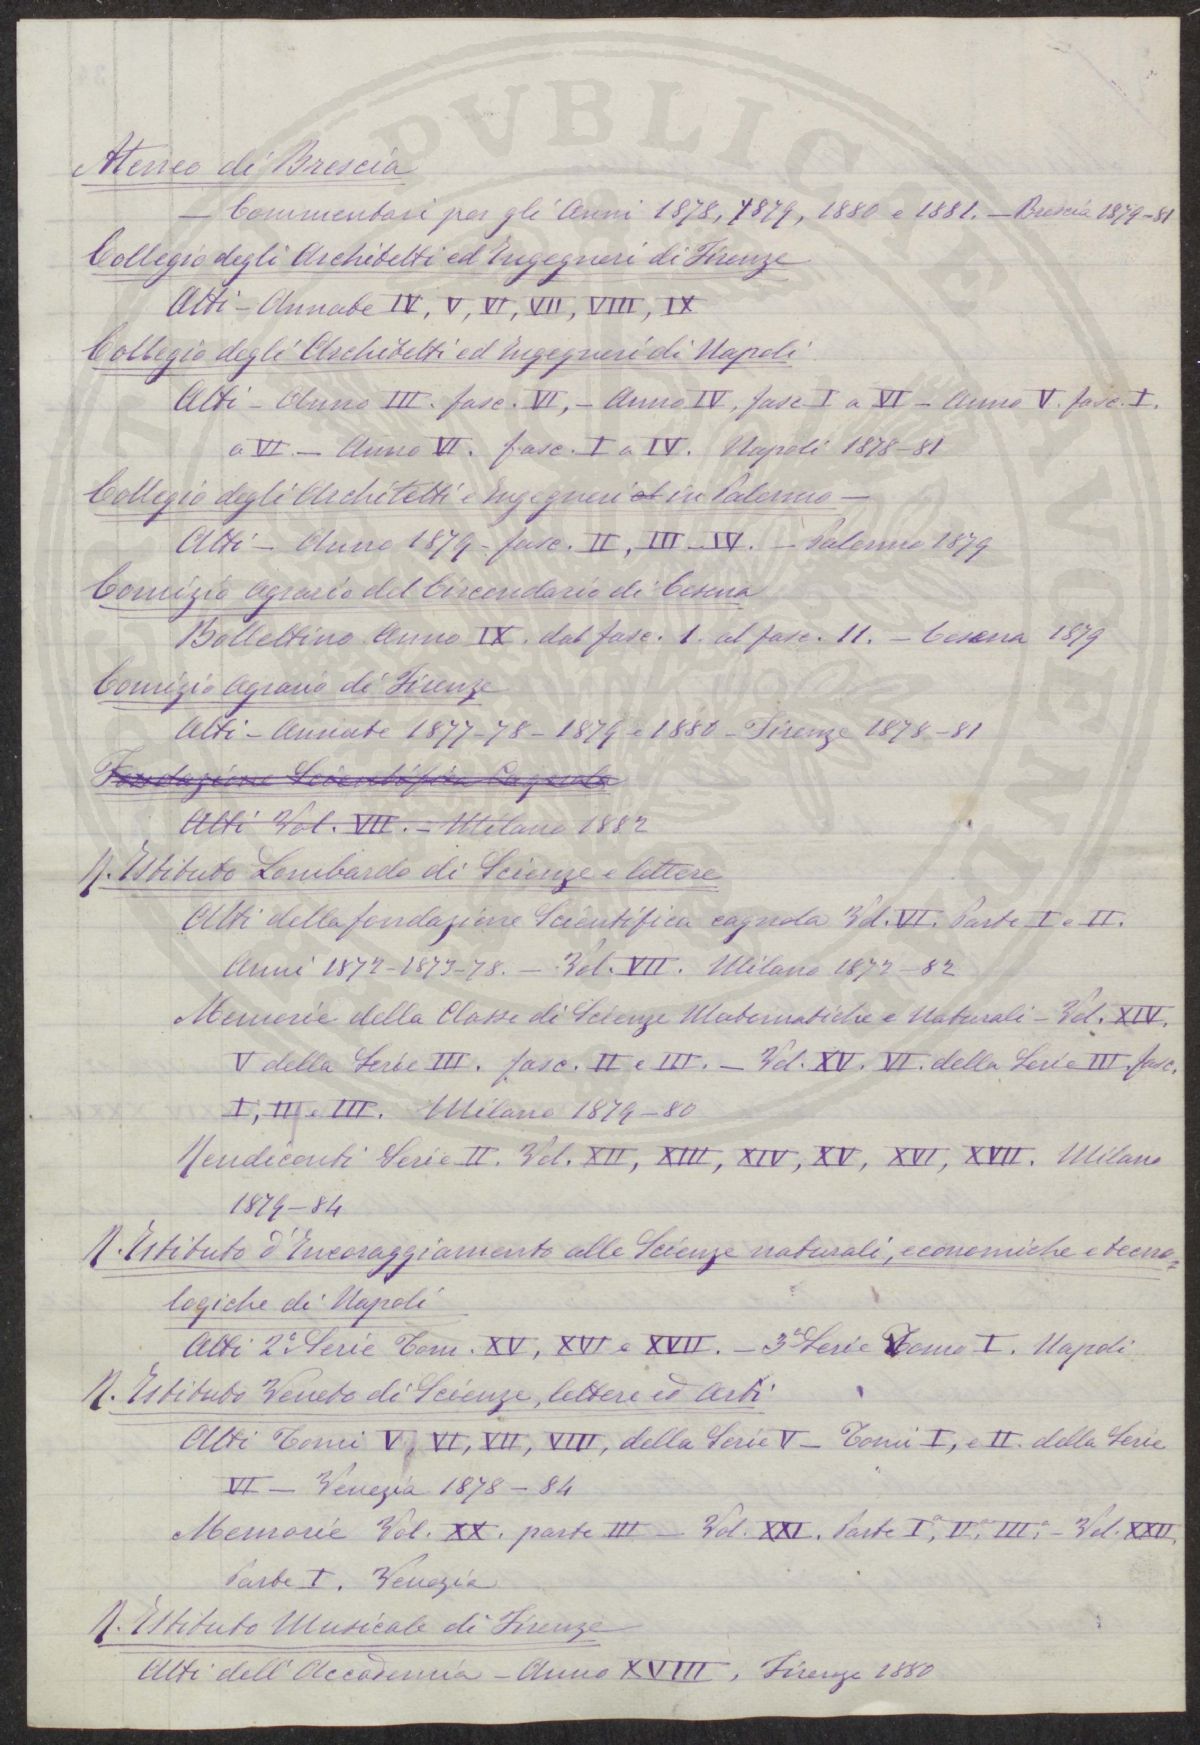 Ateneo di Brescia
— Commentari per gli Anni 1878, 1879, 1880 e 1881. — Brescia 1879-81
Collegio degli Architetti ed Ingegneri di Firenze
Atti - Annate IV, V, VI, VII, VIII, IX
Collegio degli Architetti ed Ingegneri di Napoli
Atti - Anno III. fasc. VI, - Anno IV, fasc I a VI - Anno V. fasc. I.
a VI - Anno VI. fasc. I a IV. Napoli 1878-81
Collegio degli Architetti e Ingegneri in Palermo —
Atti - Anno 1879 - fasc. II, III-IV. - Palermo 1879
Comizio agrario del Circondario di Cesena
Bollettino Anno IX. dal fasc. 1. al fasc. 11. - Cesena 1879
Comizio agrario di Firenze
Atti - Annate 1877-78 - 1879 e 1880 - Firenze 1878-81
Fondazione Scientifica Cagnola
Atti Vol. VII. - Milano 1882
R. Istituto Lombardo di Scienze e lettere
Atti della fondazione Scientifica cagnola Vol. VI. Parte I e II.
Anni 1872-1873-78. - Vol. VII. Milano 1872-82
Memorie della Classe di Scienze Matematiche e Naturali - Vol. XIV.
V della Serie III. fasc. II e III. - Vol. XV. VI. della Serie III. fasc.
I, II e III. Milano 1879-80
Rendiconti Serie II. Vol. XII, XIII, XIV, XV, XVI, XVII. Milano
1879-84
R. Istituto d'Incoraggiamento alle Scienze naturali, economiche e tecno=
logiche di Napoli
Atti 2ª Serie Tom. XV, XVI e XVII. - 3ª Serie Tomo I. Napoli
R. Istituto Veneto di Scienze, lettere ed Arti
Atti Tomi V, VI, VII, VIII, della Serie V - Tomi I, e II. della Serie
VI - Venezia 1878-84
Memorie Vol. XX. parte III - Vol. XXI. Parte Iª, IIª, IIIª - Vol. XXII.
Parte I. Venezia
R. Istituto Musicale di Firenze
Atti dell'Accademia - Anno XVIII, Firenze 1880